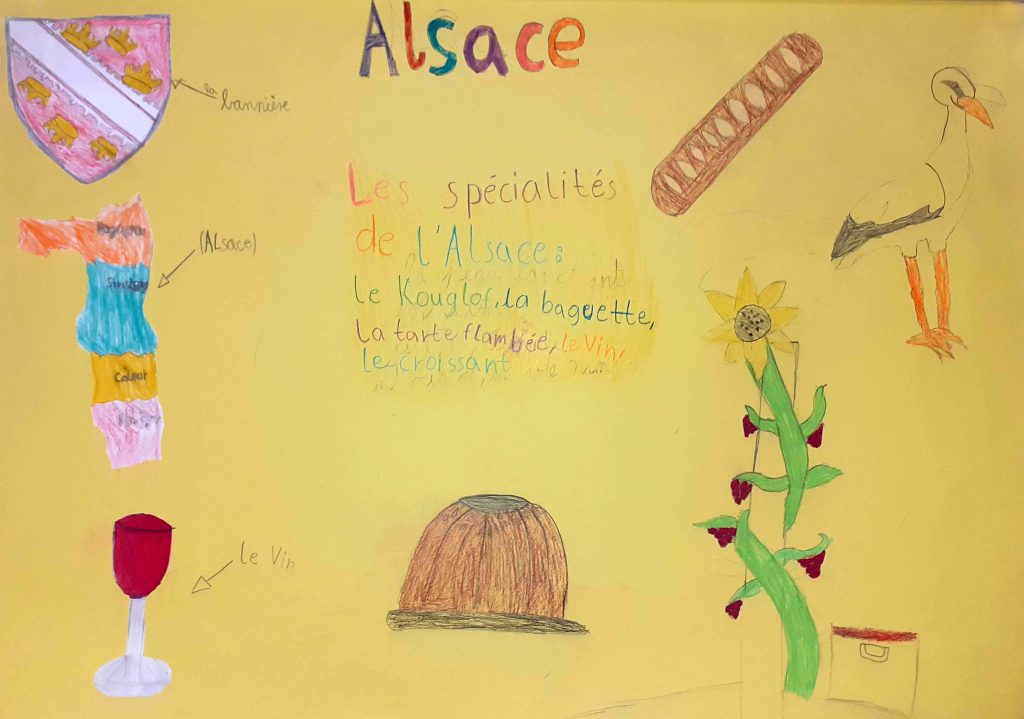 Alsace
la bannière
Les spécialités
de l'Alsace:
le Kouglof, la baguette,
la tarte flambée, le Vin,
le croissant
(ALsace)
Colmar
le Vin